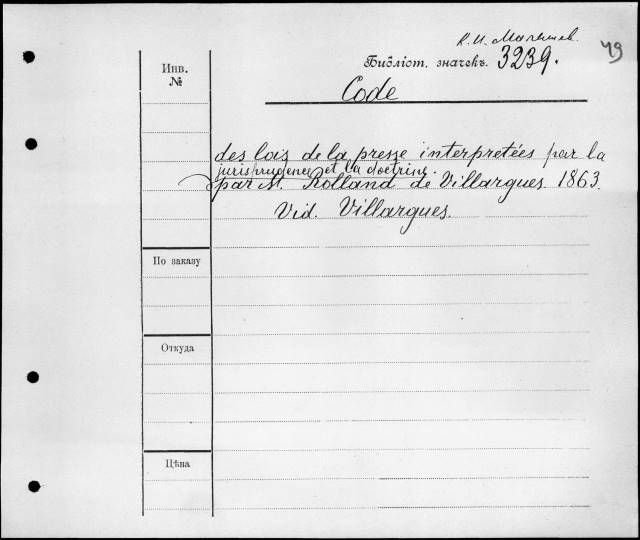 К. И. Малышев.
49
Инв.
№
Библіот. значекъ. 3239.
Code
des lois de la presse interpretées par la
jurisprudence et la doctrine.
par M. Rolland de Villargues. 1863.
Vid. Villargues.
По заказу
Откуда
Цѣна